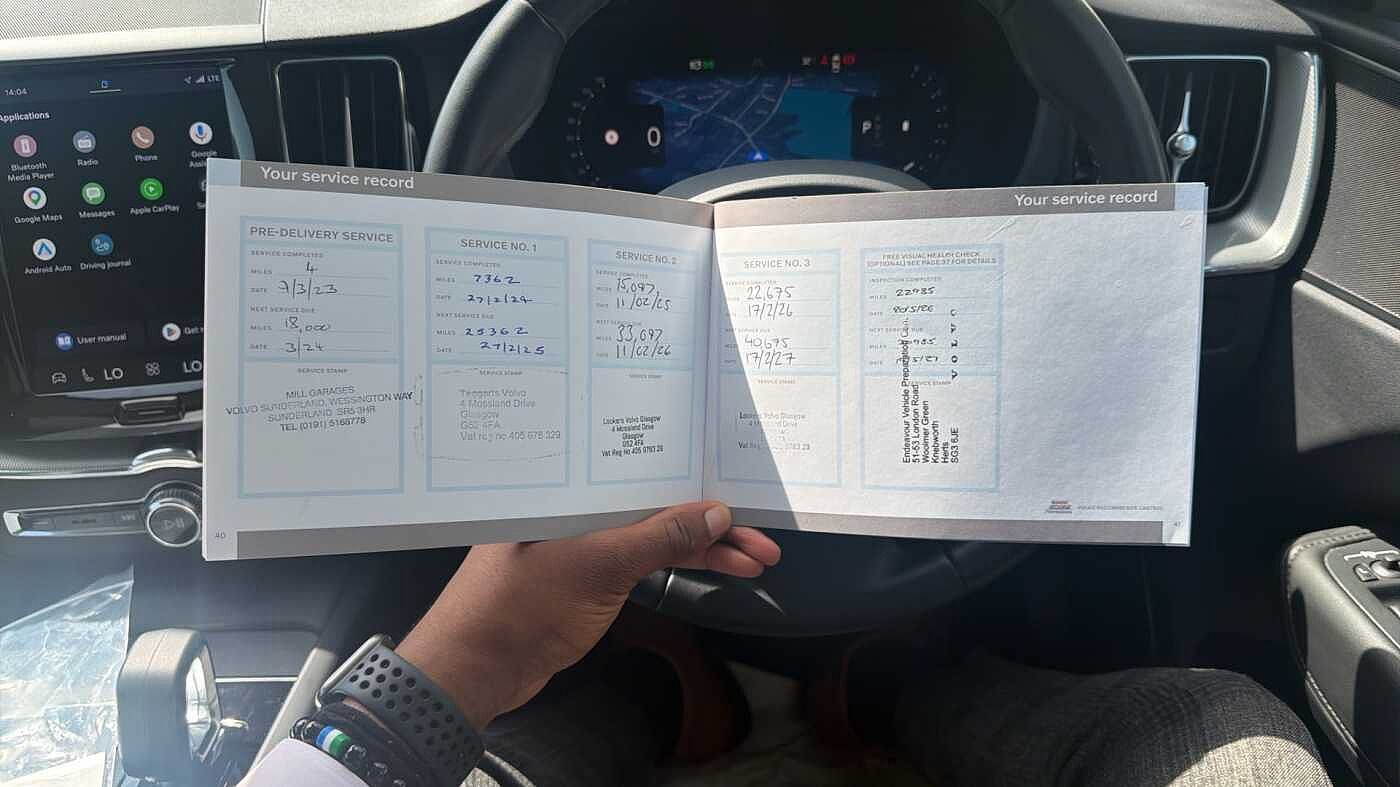 14:04
LTE
Applications
Bluetooth
Media Player
Radio
Phone
Google
Google Maps
Messages
Apple CarPlay
Android Auto
Driving journal
User manual
Get
LO
LO
0
P
Your service record
PRE-DELIVERY SERVICE
SERVICE COMPLETED
MILES 4
DATE 7/3/23
NEXT SERVICE DUE
MILES 18,000
DATE 3/24
SERVICE STAMP
MILL GARAGES
VOLVO SUNDERLAND, WESSINGTON WAY
SUNDERLAND SR5 3HR
TEL (0191) 5168778
SERVICE NO. 1
SERVICE COMPLETED
MILES 7362
DATE 27/2/24
NEXT SERVICE DUE
MILES 25362
DATE 27/2/25
SERVICE STAMP
Taggarts Volvo
4 Mossland Drive
Glasgow
G52 4FA
Vat reg no 405 678 329
SERVICE NO. 2
SERVICE COMPLETED
MILES 15,097
DATE 11/02/25
NEXT SERVICE DUE
MILES 33,097
DATE 11/02/26
SERVICE STAMP
Lockers Volvo Glasgow
4 Mossland Drive
Glasgow
G52 4FA
Vat Reg No 405 9763 29
40
Your service record
SERVICE NO. 3
SERVICE COMPLETED
MILES 22,675
DATE 17/2/26
NEXT SERVICE DUE
MILES 40,675
DATE 17/2/27
SERVICE STAMP
Lockers Volvo Glasgow
4 Mossland Drive
Vat Reg
FREE VISUAL HEALTH CHECK
(OPTIONAL) SEE PAGE 37 FOR DETAILS
INSPECTION COMPLETED
MILES 22985
DATE
NEXT SERVICE DUE
MILES
DATE
SERVICE STAMP
Endeavour Vehicle Preparation
51-63 London Road
Woolmer Green
Knebworth
Herts
SG3 6JE
VOLVO
VOLVO RECOMMENDS CASTROL
41